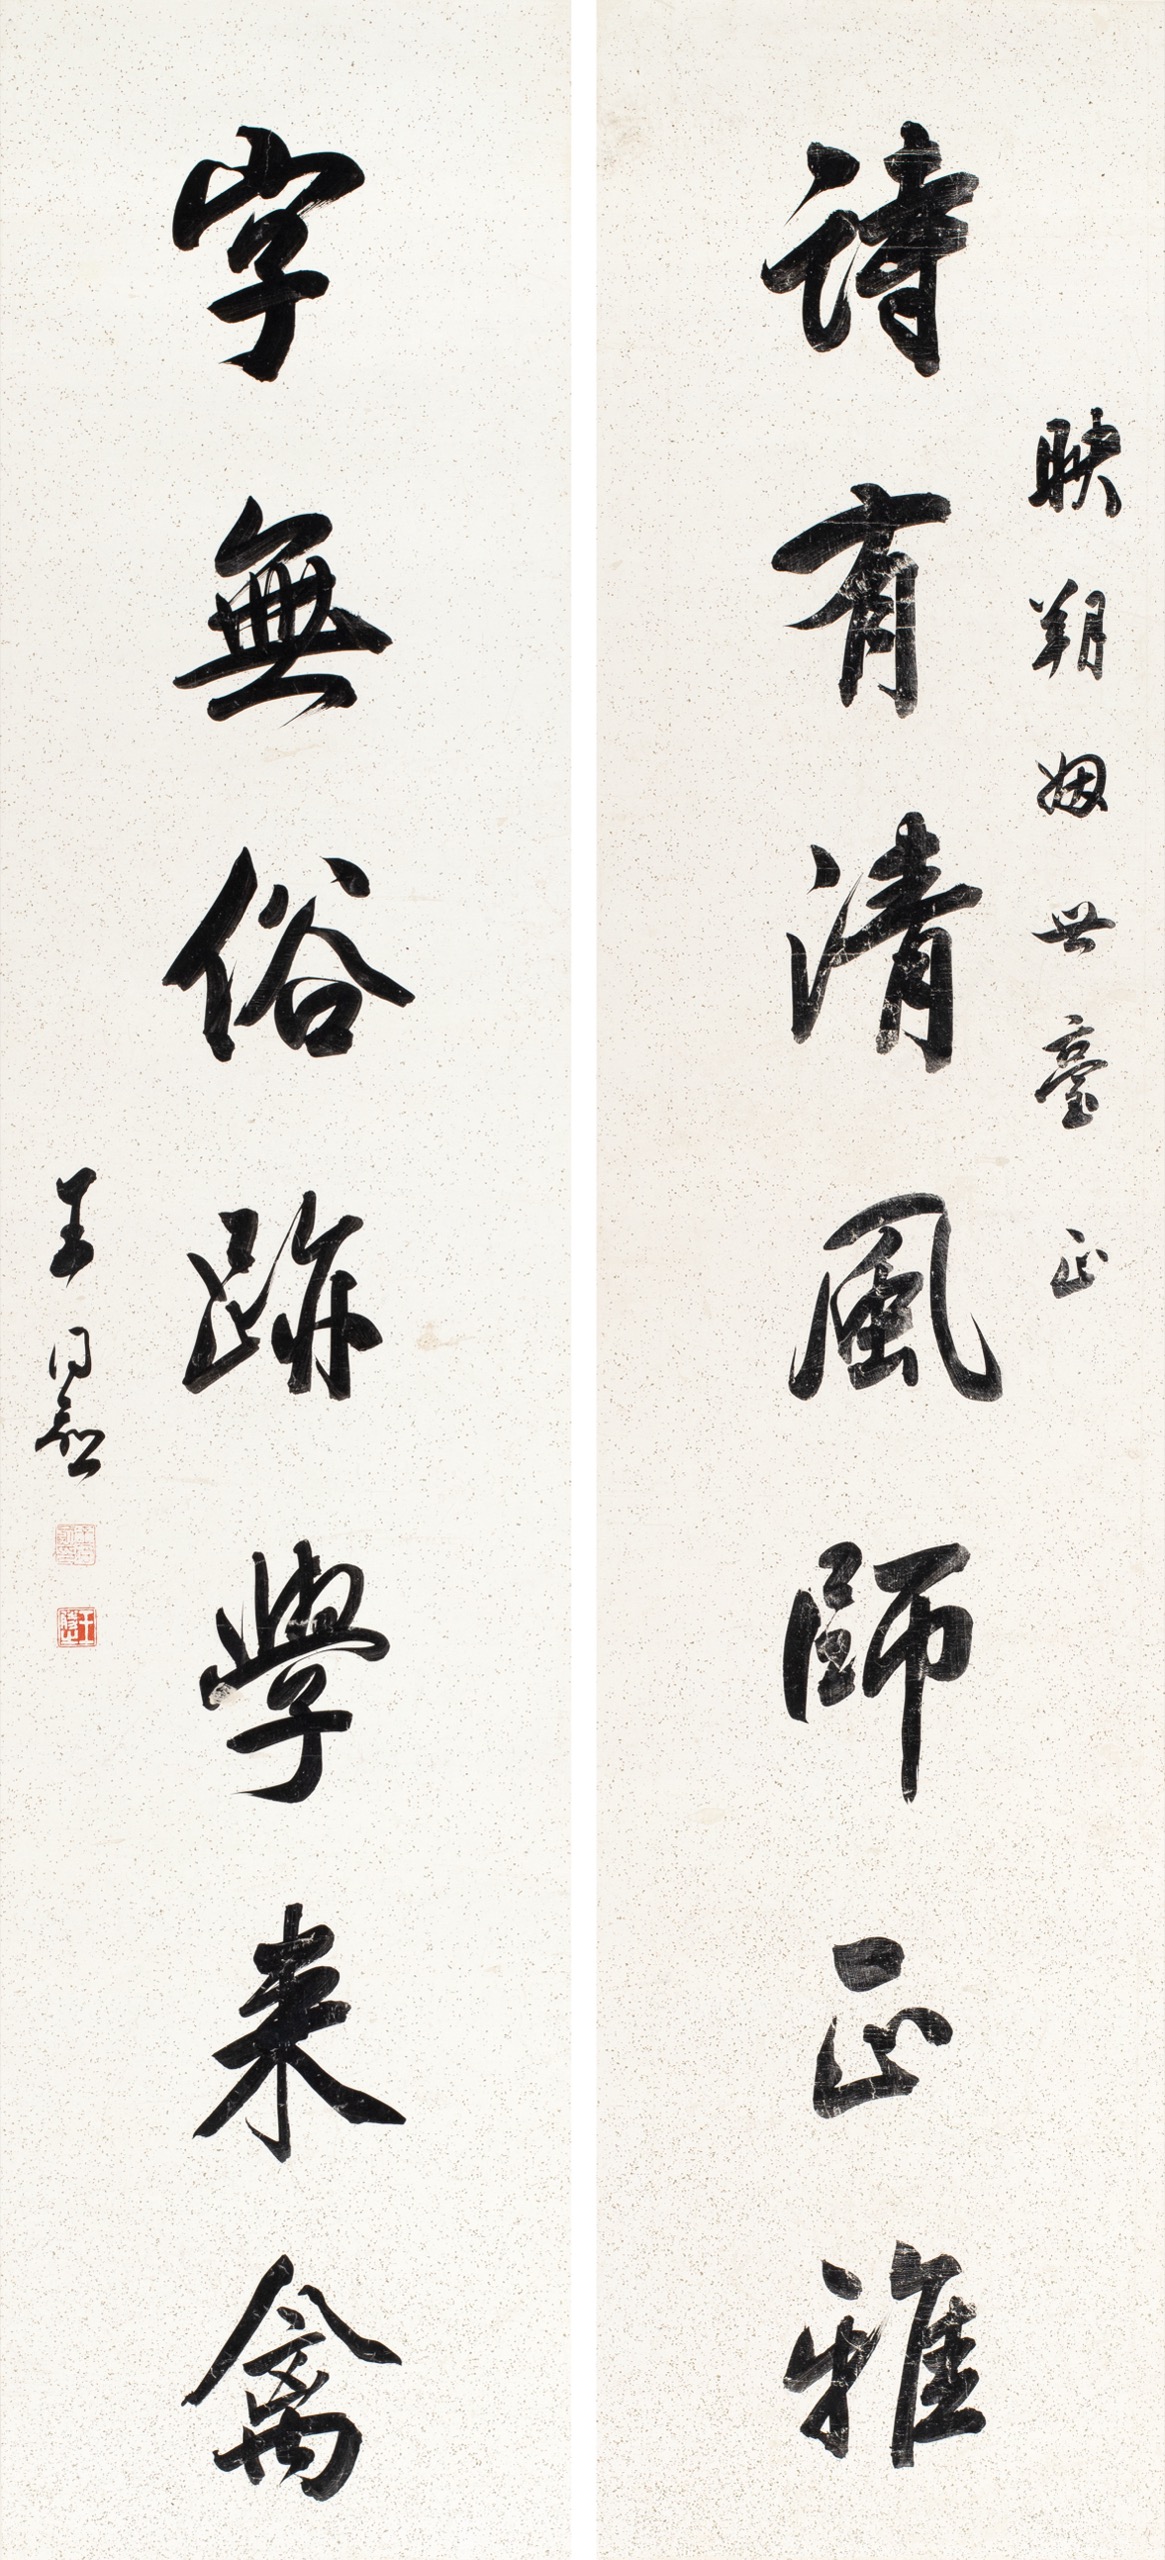 映朔姻世臺正
詩有清風師正雅
字無俗跡學來禽
王同愈